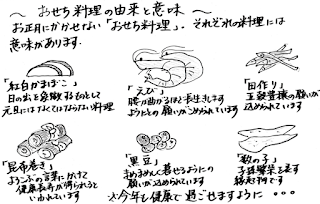 ～おせち料理の由来と意味～
お正月にかかせない「おせち料理」。それぞれの料理には
意味があります。
「紅白かまぼこ」
日の出を象徴するものとして
元旦にはなくてはならない料理
「えび」
腰が曲がるほど長生きします
ようにとの願いがこめられています
「田作り」
五穀豊穣の願いが
込められています
「昆布巻き」
よろこぶの言葉にかけて
健康長寿が得られると
いわれています
「黒豆」
まめまめしく暮せるようにの
願いが込められています
「数の子」
子孫繁栄を表す
縁起物です
☆今年も健康で過ごせますように・・・